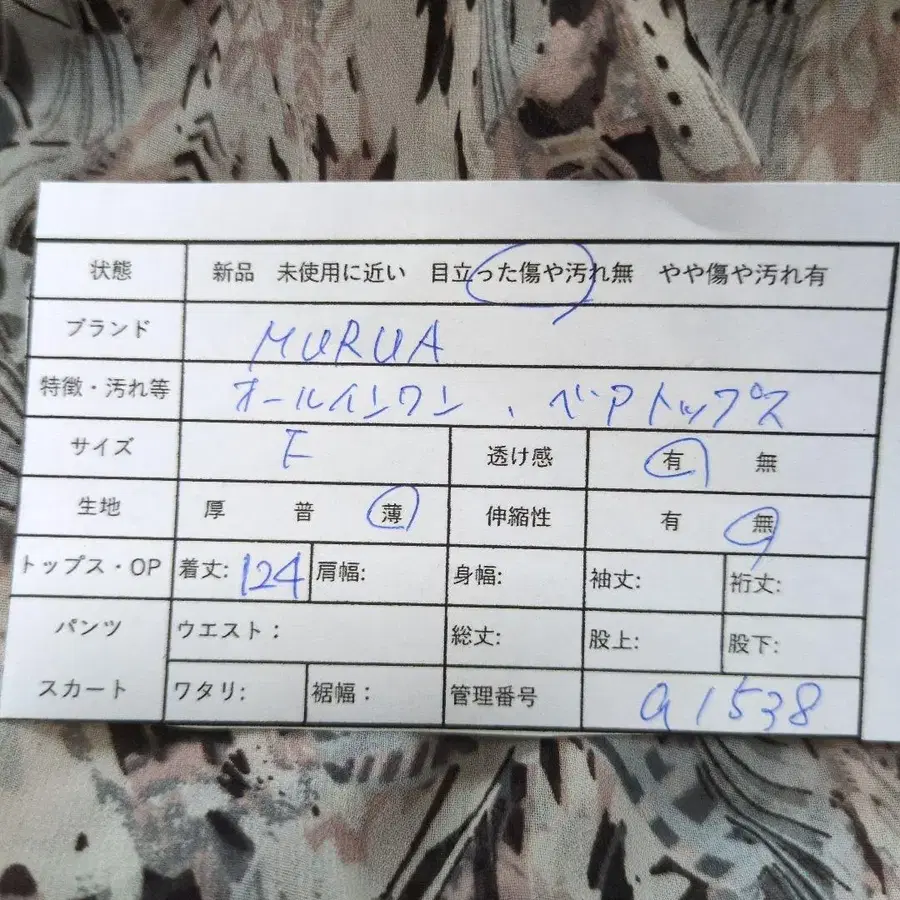 状態 新品 未使用に近い 目立った傷や汚れ無 やや傷や汚れ有
ブランド MURUA
特徴・汚れ等 オールインワン、ベアトップス
サイズ F 透け感 有 無
生地 厚 普 薄 伸縮性 有 無
トップス・OP 着丈: 124 肩幅: 身幅: 袖丈: 裄丈:
パンツ ウエスト: 総丈: 股上: 股下:
スカート ワタリ: 裾幅: 管理番号 a1538